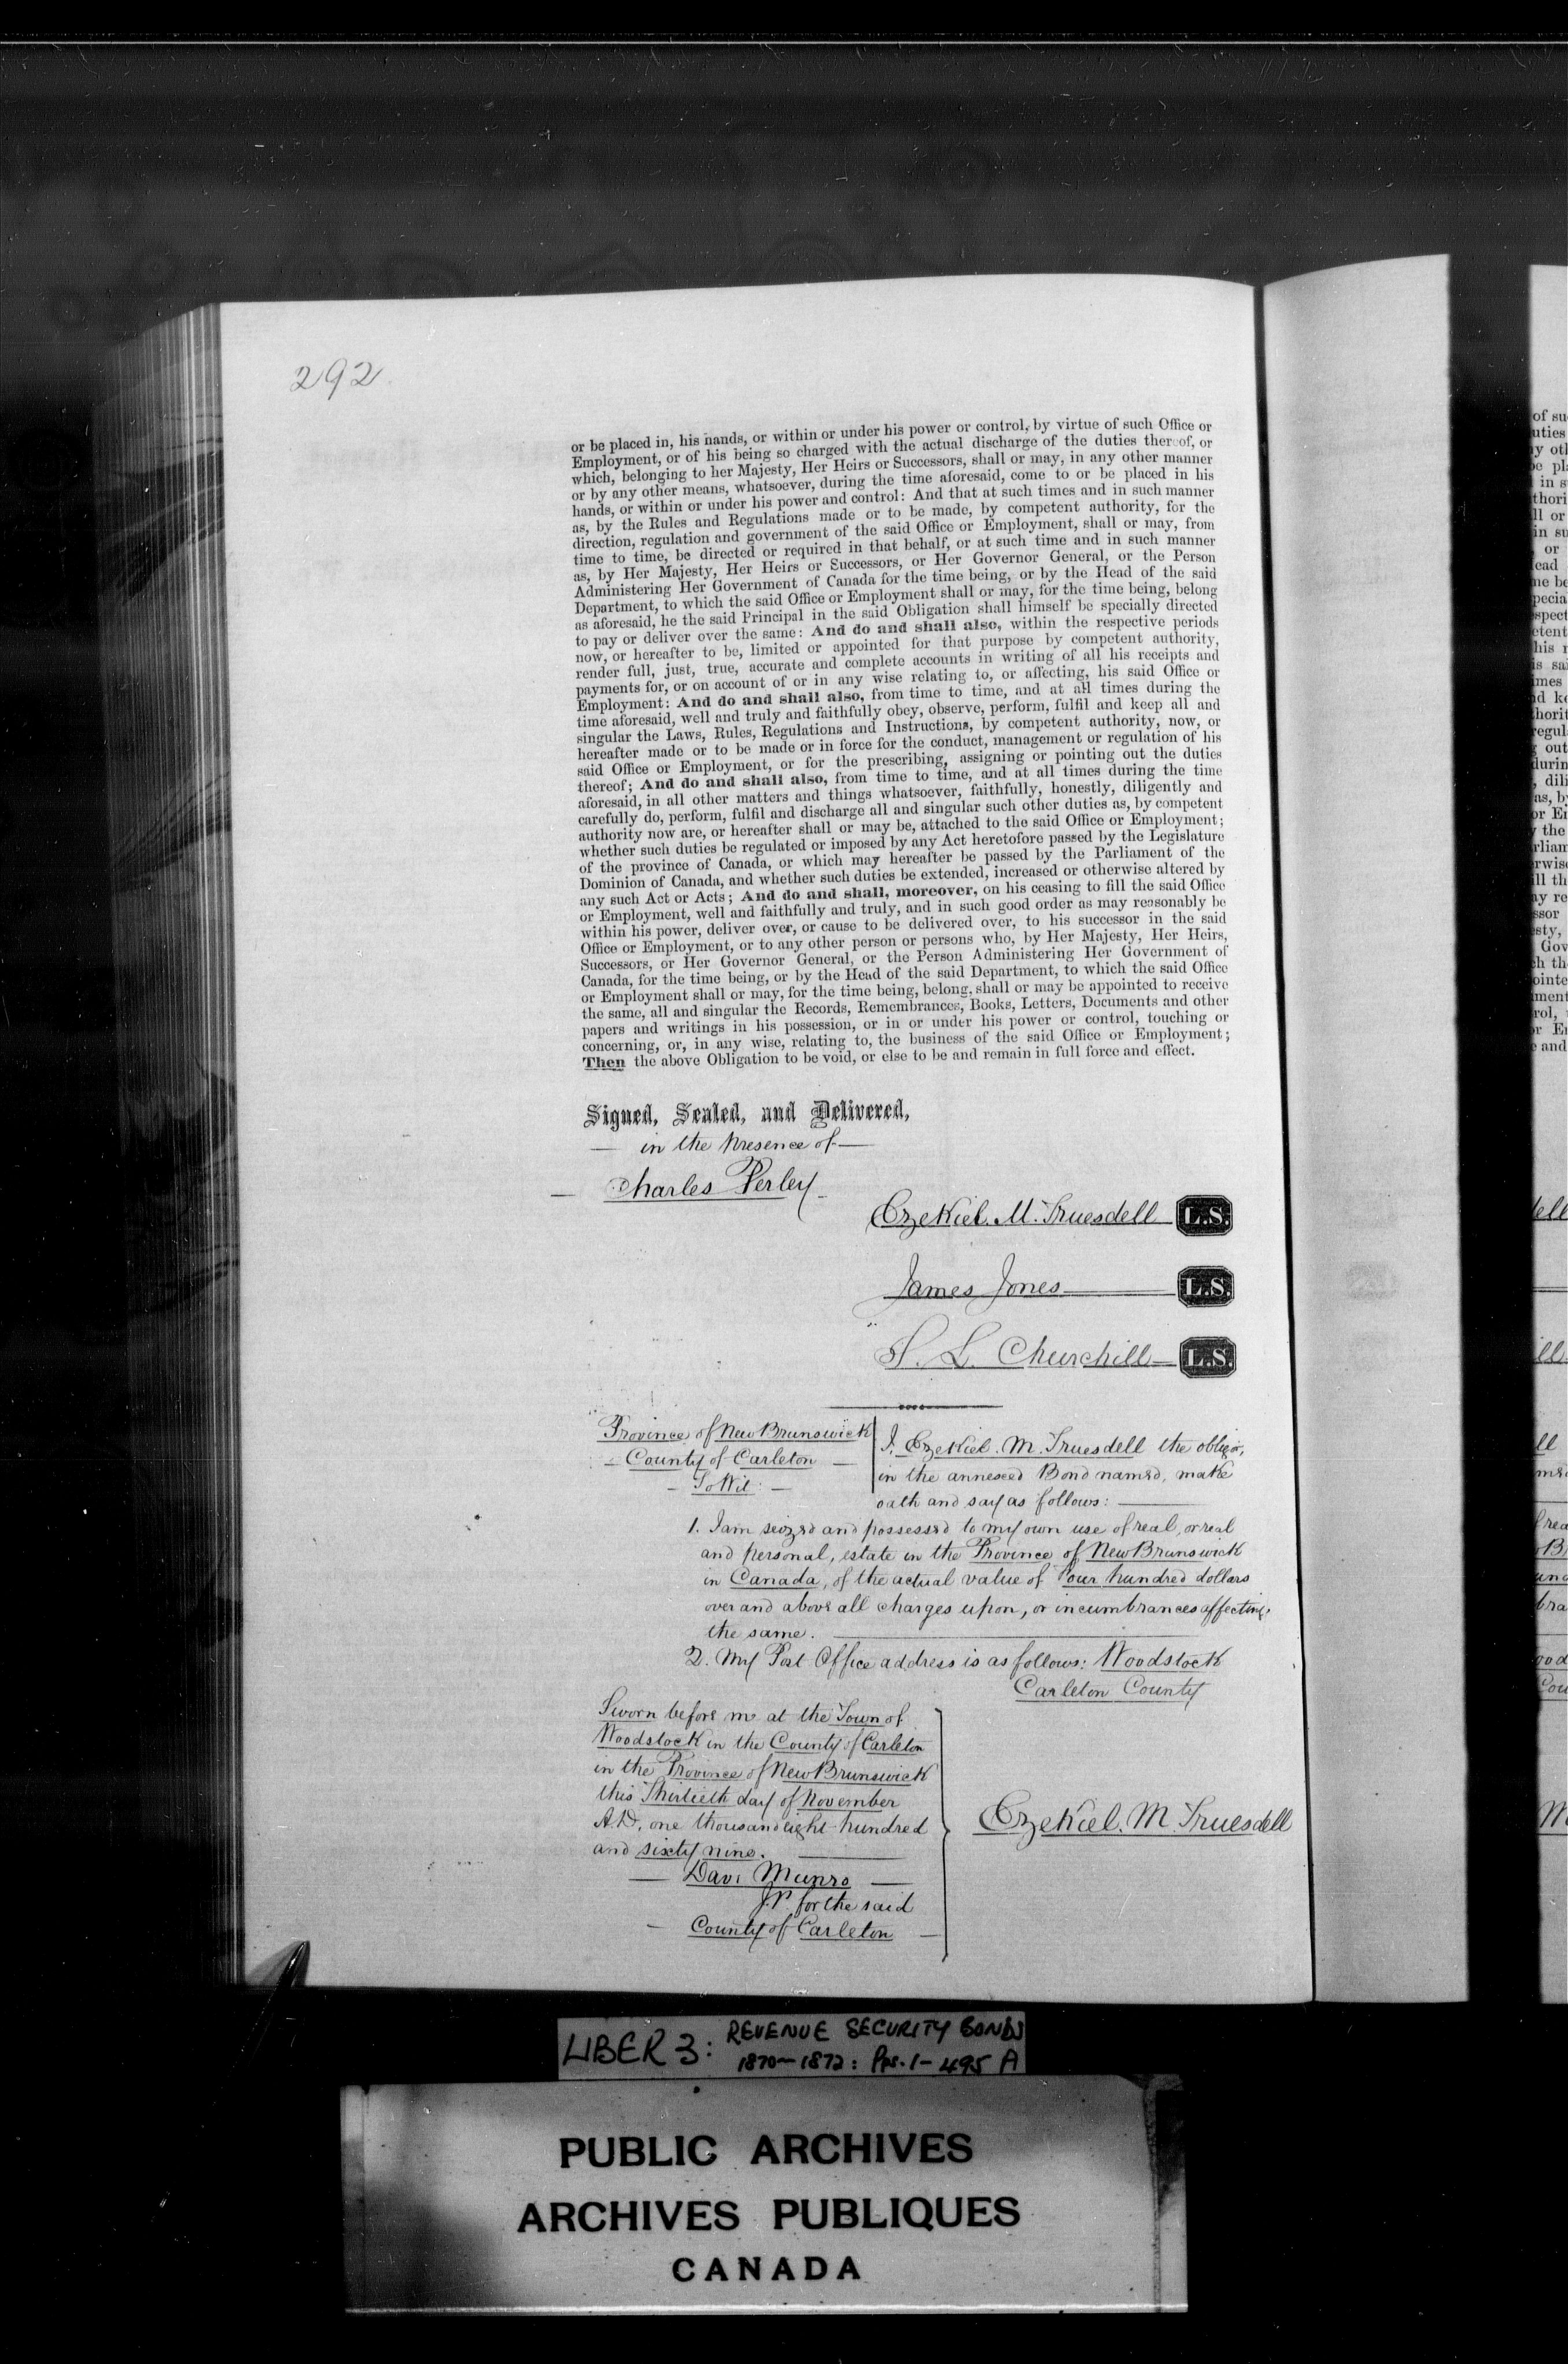 292
or be placed in, his hands, or within or under his power or control, by virtue of such Office or
Employment, or of his being so charged with the actual discharge of the duties thereof, or
which, belonging to her Majesty, Her Heirs or Successors, shall or may, in any other manner
or by any other means, whatsoever, during the time aforesaid, come to or be placed in his
hands, or within or under his power and control: And that at such times and in such manner
as, by the Rules and Regulations made or to be made, by competent authority, for the
direction, regulation and government of the said Office or Employment, shall or may, from
time to time, be directed or required in that behalf, or at such time and in such manner
as, by Her Majesty, Her Heirs or Successors, or Her Governor General, or the Person
Administering Her Government of Canada for the time being, or by the Head of the said
Department, to which the said Office or Employment shall or may, for the time being, belong
as aforesaid, he the said Principal in the said Obligation shall himself be specially directed
to pay or deliver over the same: And do and shall also, within the respective periods
now, or hereafter to be, limited or appointed for that purpose by competent authority,
render full, just, true, accurate and complete accounts in writing of all his receipts and
payments for, or on account of or in any wise relating to, or affecting, his said Office or
Employment: And do and shall also, from time to time, and at all times during the
time aforesaid, well and truly and faithfully obey, observe, perform, fulfil and keep all and
singular the Laws, Rules, Regulations and Instructions, by competent authority, now, or
hereafter made or to be made or in force for the conduct, management or regulation of his
said Office or Employment, or for the prescribing, assigning or pointing out the duties
thereof; And do and shall also, from time to time, and at all times during the time
aforesaid, in all other matters and things whatsoever, faithfully, honestly, diligently and
carefully do, perform, fulfil and discharge all and singular such other duties as, by competent
authority now are, or hereafter shall or may be, attached to the said Office or Employment;
whether such duties be regulated or imposed by any Act heretofore passed by the Legislature
of the province of Canada, or which may hereafter be passed by the Parliament of the
Dominion of Canada, and whether such duties be extended, increased or otherwise altered by
any such Act or Acts; And do and shall, moreover, on his ceasing to fill the said Office
or Employment, well and faithfully and truly, and in such good order as may reasonably be
within his power, deliver over, or cause to be delivered over, to his successor in the said
Office or Employment, or to any other person or persons who, by Her Majesty, Her Heirs,
Successors, or Her Governor General, or the Person Administering Her Government of
Canada, for the time being, or by the Head of the said Department, to which the said Office
or Employment shall or may, for the time being, belong, shall or may be appointed to receive
the same, all and singular the Records, Remembrances, Books, Letters, Documents and other
papers and writings in his possession, or in or under his power or control, touching or
concerning, or, in any wise, relating to, the business of the said Office or Employment;
Then the above Obligation to be void, or else to be and remain in full force and effect.
Signed, Sealed, and Delivered,
— in the Presence of —
— Charles Perley
Ezekiel. M. Truesdell L.S.
James Jones L.S.
S. L. Churchill L.S.
Province of New Brunswick
— County of Carleton —
— To Wit: —
I, Ezekiel. M. Truesdell the obligor,
in the annexed Bond named, make
oath and say as follows:
1. I am seized and possessed to my own use of real, or real
and personal, estate in the Province of New Brunswick
in Canada, of the actual value of Four hundred dollars
over and above all charges upon, or incumbrances affecting,
the same.
2. My Post Office address is as follows: Woodstock
Carleton County
Sworn before me at the Town of
Woodstock in the County of Carleton
in the Province of New Brunswick
this Thirtieth day of November
A.D. one thousand eight hundred
and sixty nine.
— Davi Munro —
J.P. for the said
— County of Carleton —
Ezekiel. M. Truesdell
LIBER 3: REVENUE SECURITY BONDS
1870-1872: Pps. 1-495 A
PUBLIC ARCHIVES
ARCHIVES PUBLIQUES
CANADA